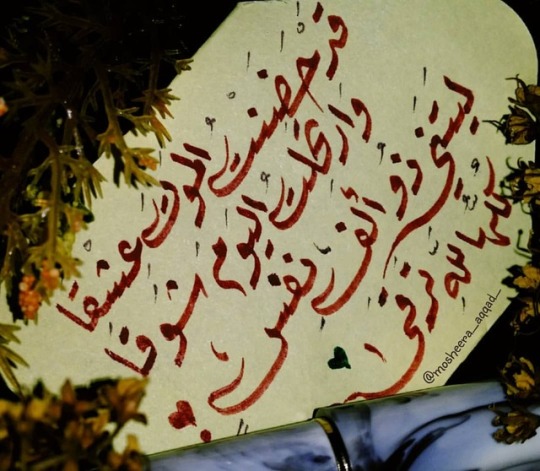 قد حضنت الموت عشقا
وارتحلت اليوم شوقا
ليتني ذو ألف نفس
كلها لله ترقى
@mosheera_aqqad_